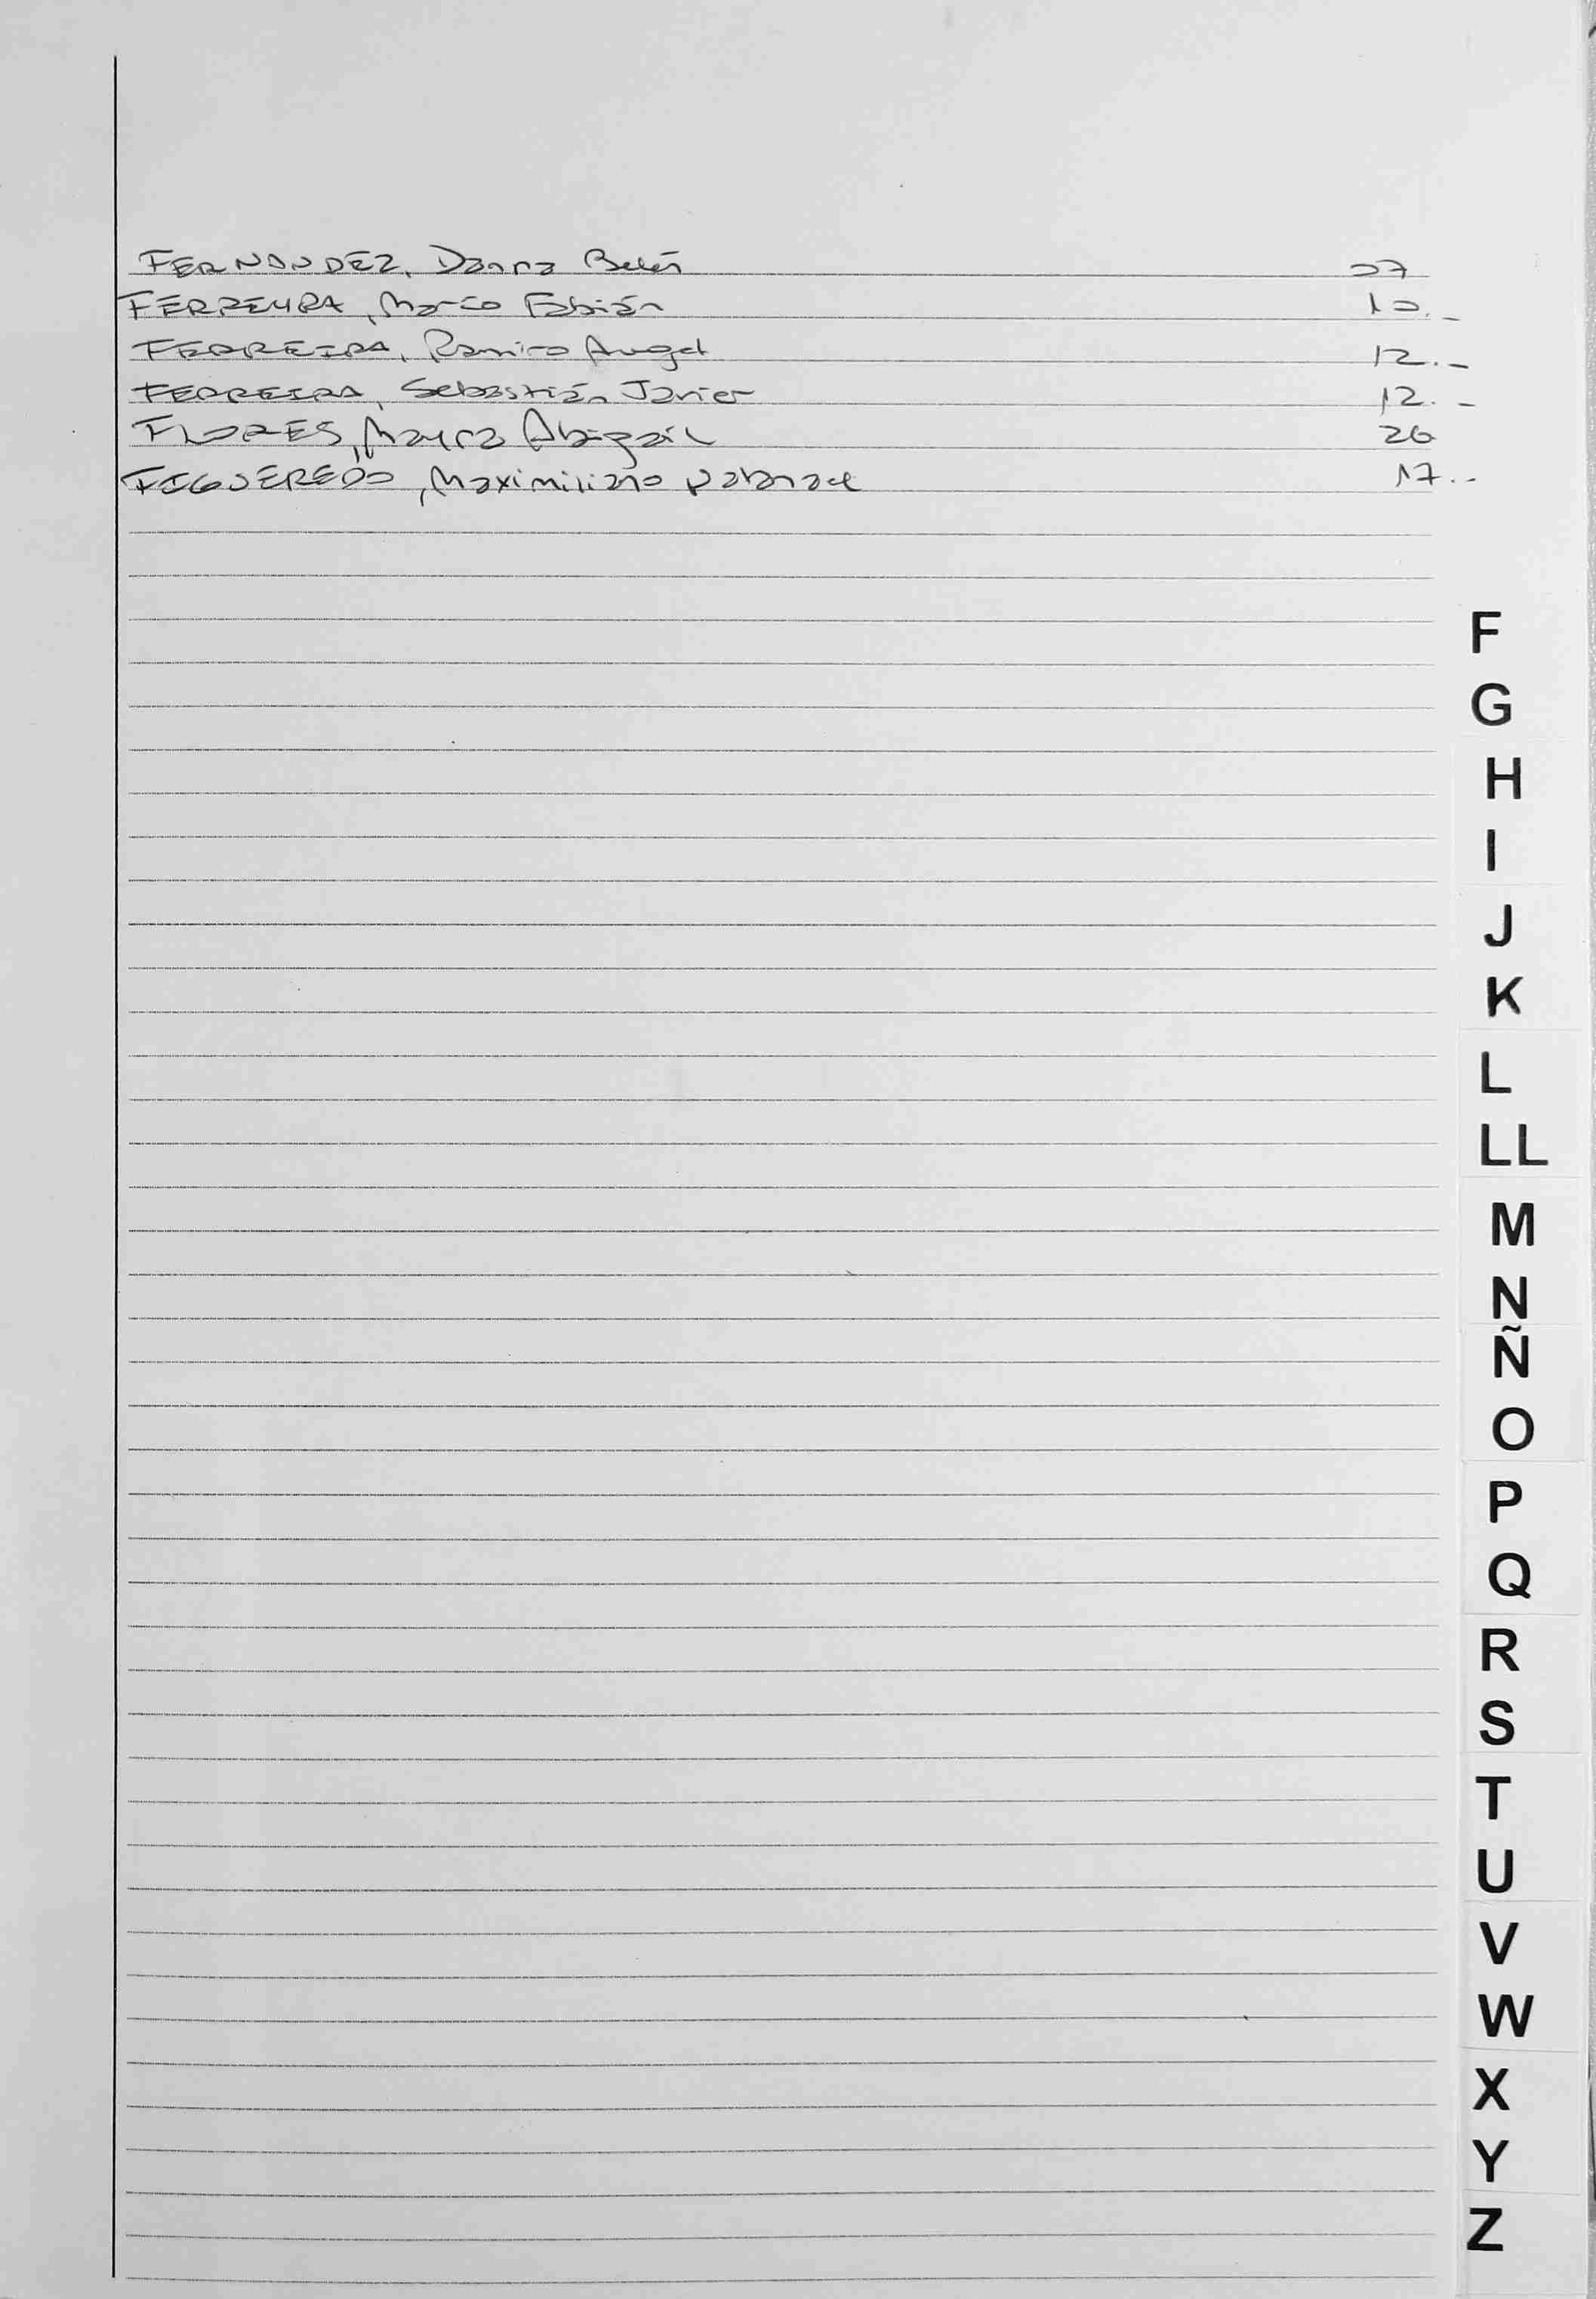 FERNANDEZ, Danna Belén 07
FERREYRA, Marco Fabián 10.-
FERREIRA, Ramiro Angel 12.-
FERREIRA, Sebastián Javier 12.-
FLORES, Mayra Abigail 26
FIGUEREDO, Maximiliano 17.-
F
G
H
I
J
K
L
LL
M
N
Ñ
O
P
Q
R
S
T
U
V
W
X
Y
Z